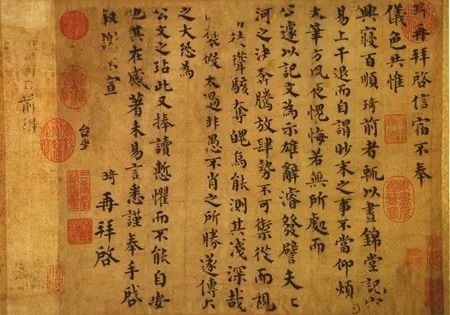 琦再拜啓信宿不奉
儀色共惟
興寢百順琦前者輒以晝錦堂記
易上干退而自謂眇末之事不當仰煩
大筆方夙夜愧悔若無所處而
公遽以記文為示雄辭濬發譬夫
河之決奔騰放肆勢不可禦從而視
聳駭奪魄烏能測其淺深哉
褒假太過非愚不肖之所勝遂傳
之大恐為
公文之玷此又捧讀慙懼而不能自安
也其在感著未易言悉謹奉手啓
宣
琦再拜啓
台坐